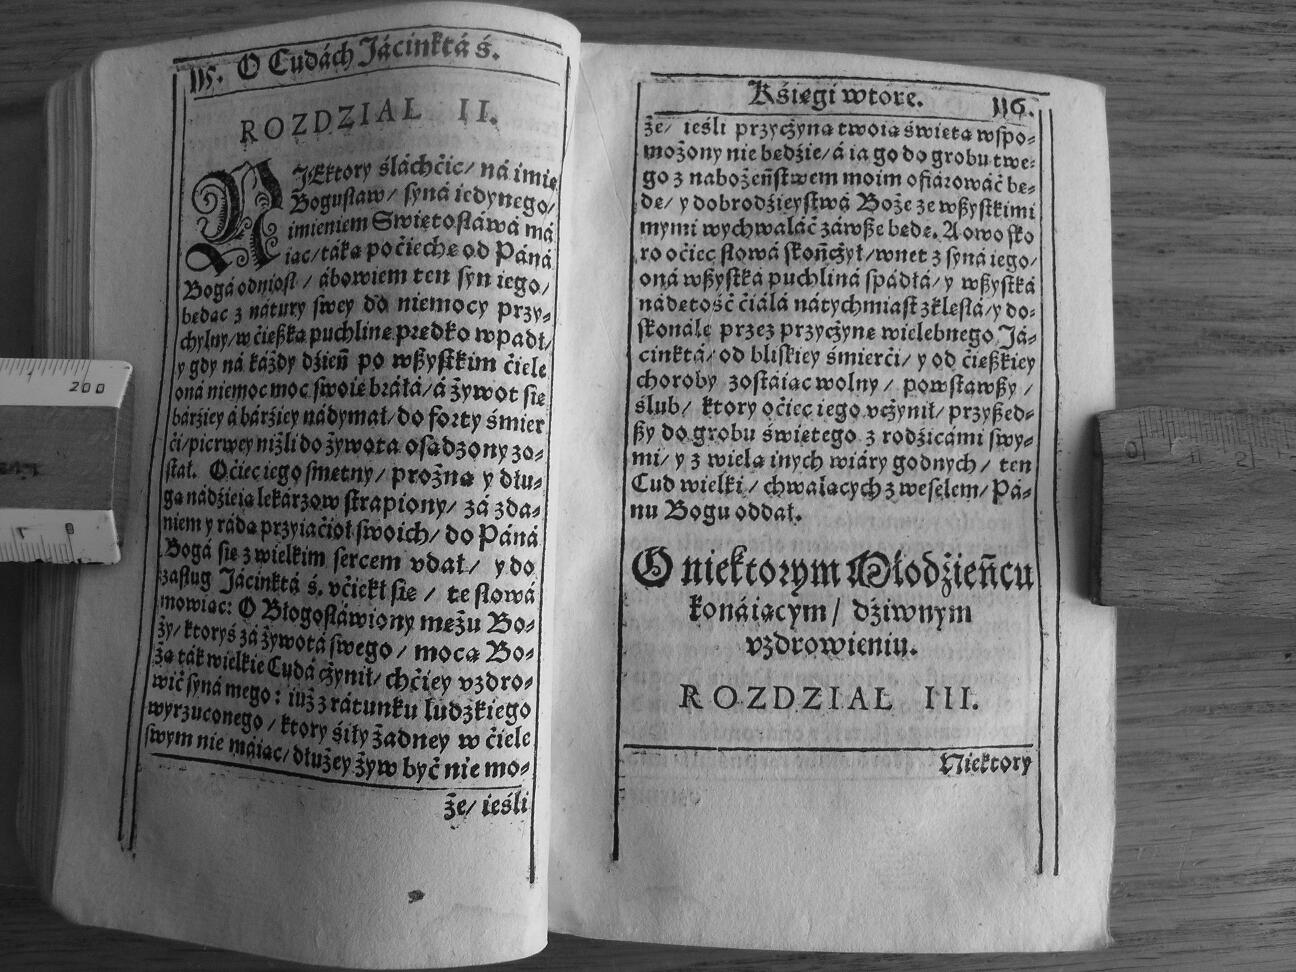 115. O Cudách Jácinktá ś.
ROZDZIAŁ II.
NIEktory śláchćic/ ná imię
Bogusław/ syná iedynego/
imieniem Swiętosłáwá má
iąc/ táką poćiechę od Páná
Bogá odniosł/ ábowiem ten syn iego/
będąc z nátury swey do niemocy przy-
chylny/ w ćięßką puchlinę prędko wpadł/
y gdy ná káżdy dźień po wßystkim ćiele
oná niemoc moc swoię bráłá/ á żywot się
bárźiey á bárźiey nádymał/ do forty śmier
ći/ pierwey niżli do żywotá osądzony zo-
stał. Oćiec iego smętny/ prożną y dłu-
gą nádźieią lekárzow strapiony/ zá zdá-
niem y rádą przyiaćioł swoich/ do Páná
Bogá się z wielkim sercem vdał/ y do
zasług Jácinktá ś. vćiekł się/ te słowá
mowiąc: O Błogosłáwiony mężu Bo-
ży/ ktoryś zá żywotá swego/ mocą Bo-
żą ták wielkie Cudá cżynił/ chćiey vzdro-
wić syná mego: iuż z rátunku ludzkiego
wyrzuconego/ ktory śiły żadney w ćiele
swym nie máiąc/ dłużey żyw być nie mo-
że/ ieśli
Kśięgi wtore. 116.
że/ ieśli przycżyną twoią świętą wspo-
możony nie będźie/ á ia go do grobu twe-
go z nabożeństwem moim ofiárowáć bę-
dę/ y dobrodźieystwá Boże ze wßystkimi
mymi wychwaláć záwße będę. A owo sko
ro oćiec słowá skończył/ wnet z syná iego/
oná wßystká puchliná spádłá/ y wßystká
nádętość ćiáłá nátychmiast zklęsłá/ y do-
skonále przez przycżynę wielebnego Já-
cinktá/ od bliskiey śmierći/ y od ćięßkiey
choroby zostáiąc wolny/ powstawßy/
ślub/ ktory oćiec iego vcżynił/ przyßed-
ßy do grobu świętego z rodźicámi swy-
mi/ y z wielą inych wiáry godnych/ ten
Cud wielki/ chwalących z weselem/ Pá-
nu Bogu oddał.
O niektorym Młodźieńcu
konáiącym/ dźiwnym
vzdrowieniu.
ROZDZIAŁ III.
Niektory
200
0 1 2